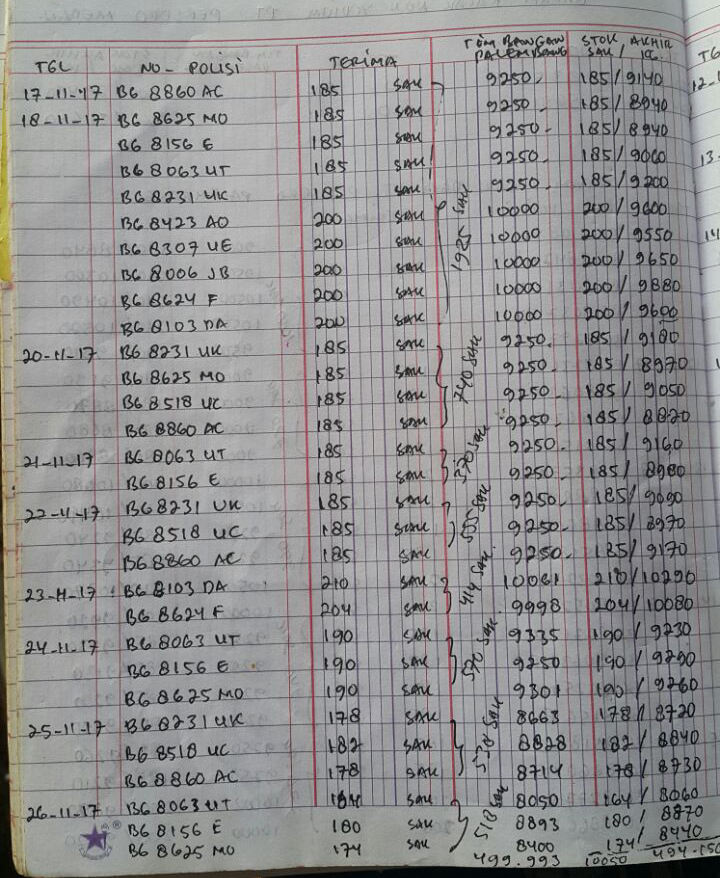 TGL NO - POLISI TERIMA TIMBANGAN PALEMBANG STOK AKHIR SAK / KG
17-11-17 BG 8860 AC 185 SAK 9250 185/9140
18-11-17 BG 8625 MO 185 SAK 9250 185/8940
BG 8156 E 185 SAK 9250 185/8940
BG 8063 UT 185 SAK 9250 185/9060
BG 8231 UK 185 SAK 9250 185/9200
BG 8423 AO 200 SAK 1925 SAK 10000 200/9600
BG 8307 UE 200 SAK 10000 200/9550
BG 8006 JB 200 SAK 10000 200/9650
BG 8624 F 200 SAK 10000 200/9880
BG 8103 DA 200 SAK 10000 200/9600
20-11-17 BG 8231 UK 185 SAK 9250 185/9180
BG 8625 MO 185 SAK 740 SAK 9250 185/8970
BG 8518 UC 185 SAK 9250 185/9050
BG 8860 AC 185 SAK 9250 185/8820
21-11-17 BG 8063 UT 185 SAK 370 SAK 9250 185/9160
BG 8156 E 185 SAK 9250 185/8980
22-11-17 BG 8231 UK 185 SAK 9250 185/9090
BG 8518 UC 185 SAK 555 SAK 9250 185/8970
BG 8860 AC 185 SAK 9250 185/9170
23-11-17 BG 8103 DA 210 SAK 414 SAK 10081 210/10290
BG 8624 F 204 SAK 9998 204/10080
24-11-17 BG 8063 UT 190 SAK 9335 190/9230
BG 8156 E 190 SAK 570 SAK 9250 190/9290
BG 8625 MO 190 SAK 9301 190/9260
25-11-17 BG 8231 UK 178 SAK 8663 178/8720
BG 8518 UC 182 SAK 538 SAK 8828 182/8840
BG 8860 AC 178 SAK 8714 178/8730
26-11-17 BG 8063 UT 164 SAK 8050 164/8060
BG 8156 E 180 SAK 518 SAK 8893 180/8870
BG 8625 MO 174 SAK 8400 174/8440
499.993 10050 494.150